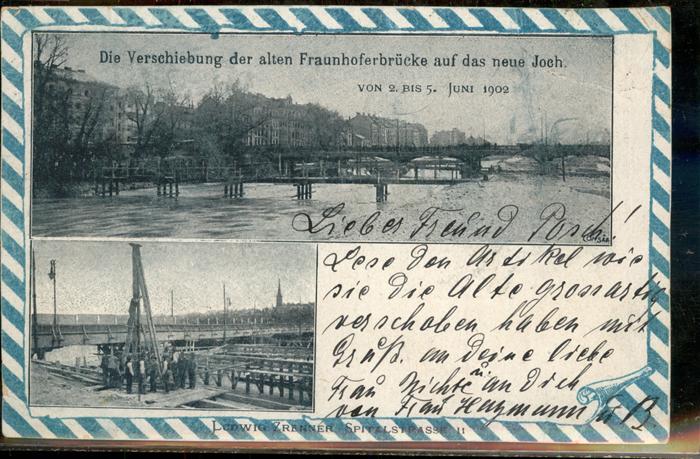 Die Verschiebung der alten Fraunhoferbrücke auf das neue Joch.
VON 2. BIS 5. JUNI 1902
Lieber Freund Posch!
Lese den Artikel wie
sie die Alte grossartig
verschoben haben mit
Gruß an deine liebe
Frau Nichte u an dich
von Frau Hazmann u B
LUDWIG ZRENNER SPITALSTRASSE 11